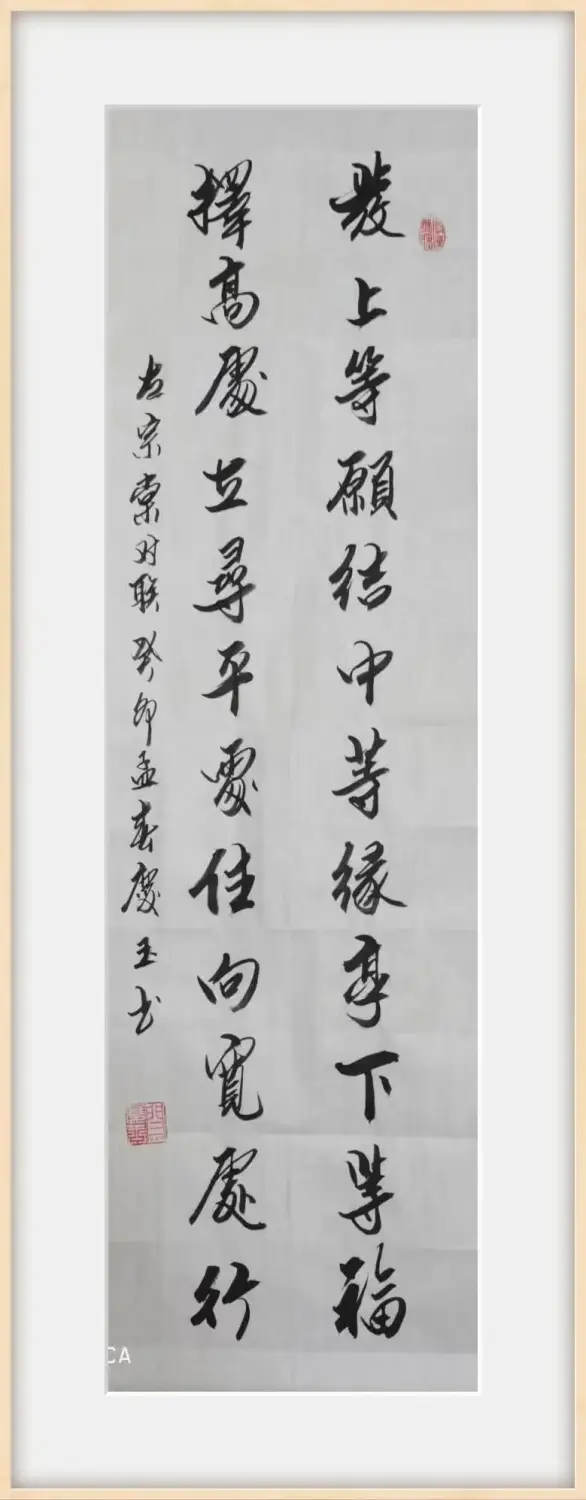 發上等願結中等緣享下等福
擇高處立尋平處住向寬處行
左宗棠对联癸卯孟春慶玉书
CA